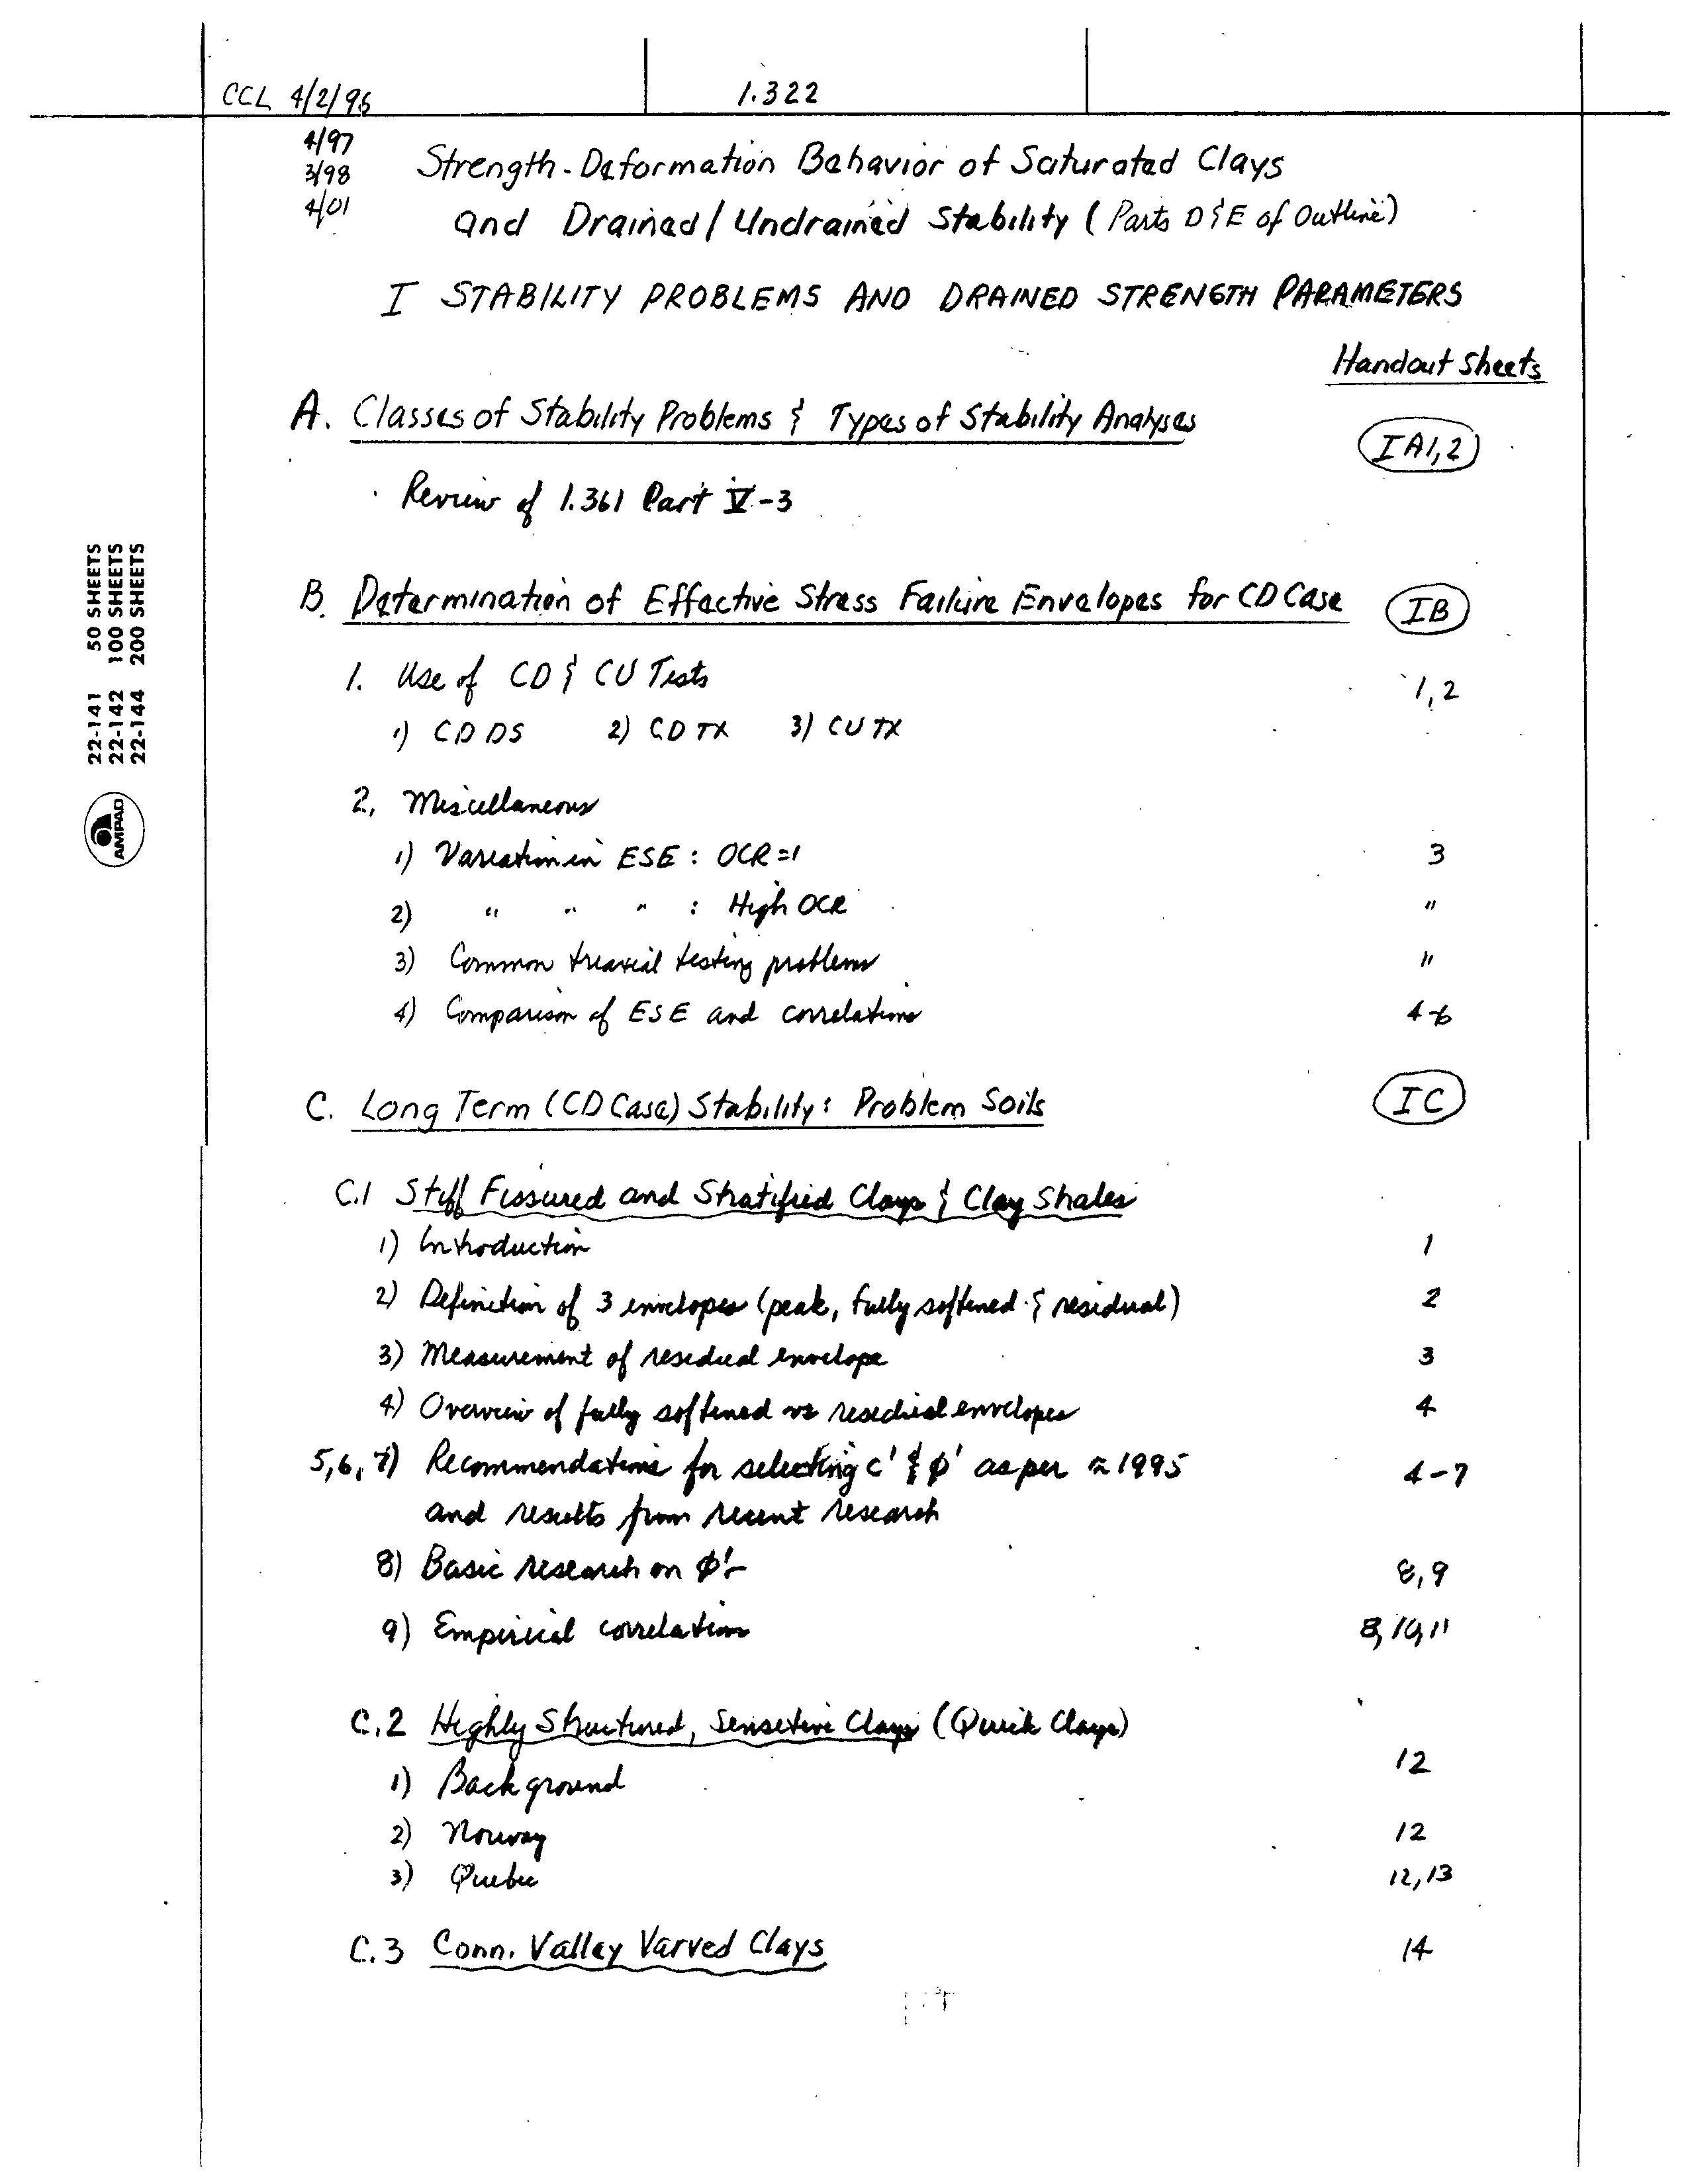 CCL 4/2/96 1.322
4/97
3/98
4/01
Strength-Deformation Behavior of Saturated Clays
and Drained/Undrained Stability (Parts D & E of Outline)
I STABILITY PROBLEMS AND DRAINED STRENGTH PARAMETERS
Handout Sheets
A. Classes of Stability Problems & Types of Stability Analyses IA1,2
Review of 1.361 Part V-3
B. Determination of Effective Stress Failure Envelopes for CD Case IB
1. Use of CD & CU Tests 1,2
1) CD DS 2) CD TX 3) CU TX
2. Miscellaneous
1) Variation in ESE : OCR=1 3
2) " " " : High OCR "
3) Common triaxial testing problems "
4) Comparison of ESE and correlations 4-6
C. Long Term (CD Case) Stability: Problem Soils IC
C.1 Stiff Fissured and Stratified Clays & Clay Shales
1) Introduction 1
2) Definition of 3 envelopes (peak, fully softened & residual) 2
3) Measurement of residual envelope 3
4) Overview of fully softened vs residual envelopes 4
5,6,7) Recommendations for selecting c' & φ' as per ≈ 1995 4-7
and results from recent research
8) Basic research on φ'r 8,9
9) Empirical correlations 8,10,11
C.2 Highly Structured, Sensitive Clays (Quick Clays)
1) Background 12
2) Norway 12
3) Quebec 12,13
C.3 Conn. Valley Varved Clays 14
22-141 50 SHEETS
22-142 100 SHEETS
22-144 200 SHEETS
AMPAD